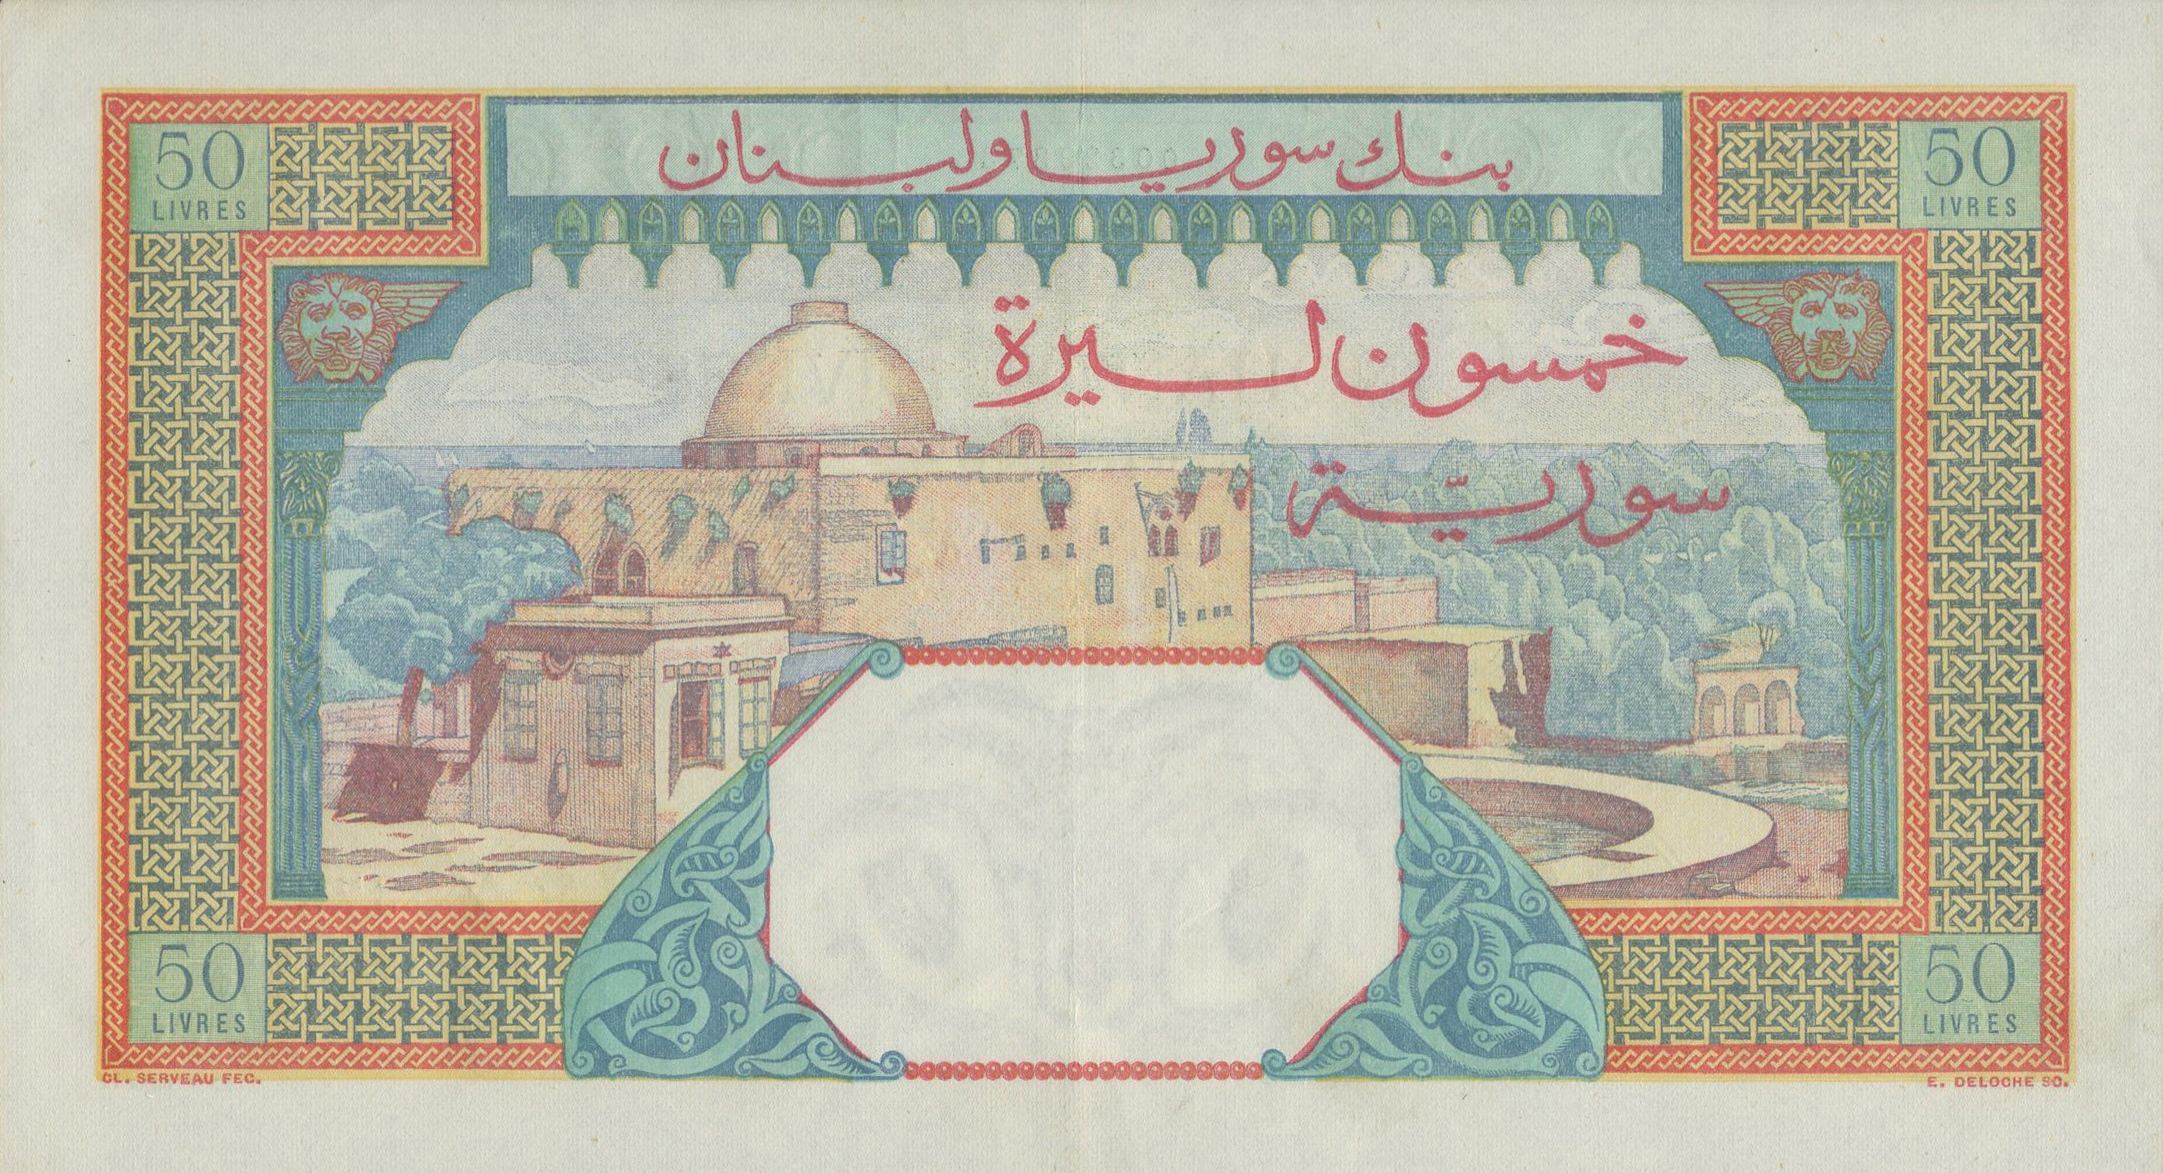 بنك سوريا ولبنان
50 LIVRES
50 LIVRES
خمسون ليرة
سورية
50 LIVRES
50 LIVRES
CL. SERVEAU FEC.
E. DELOCHE SC.